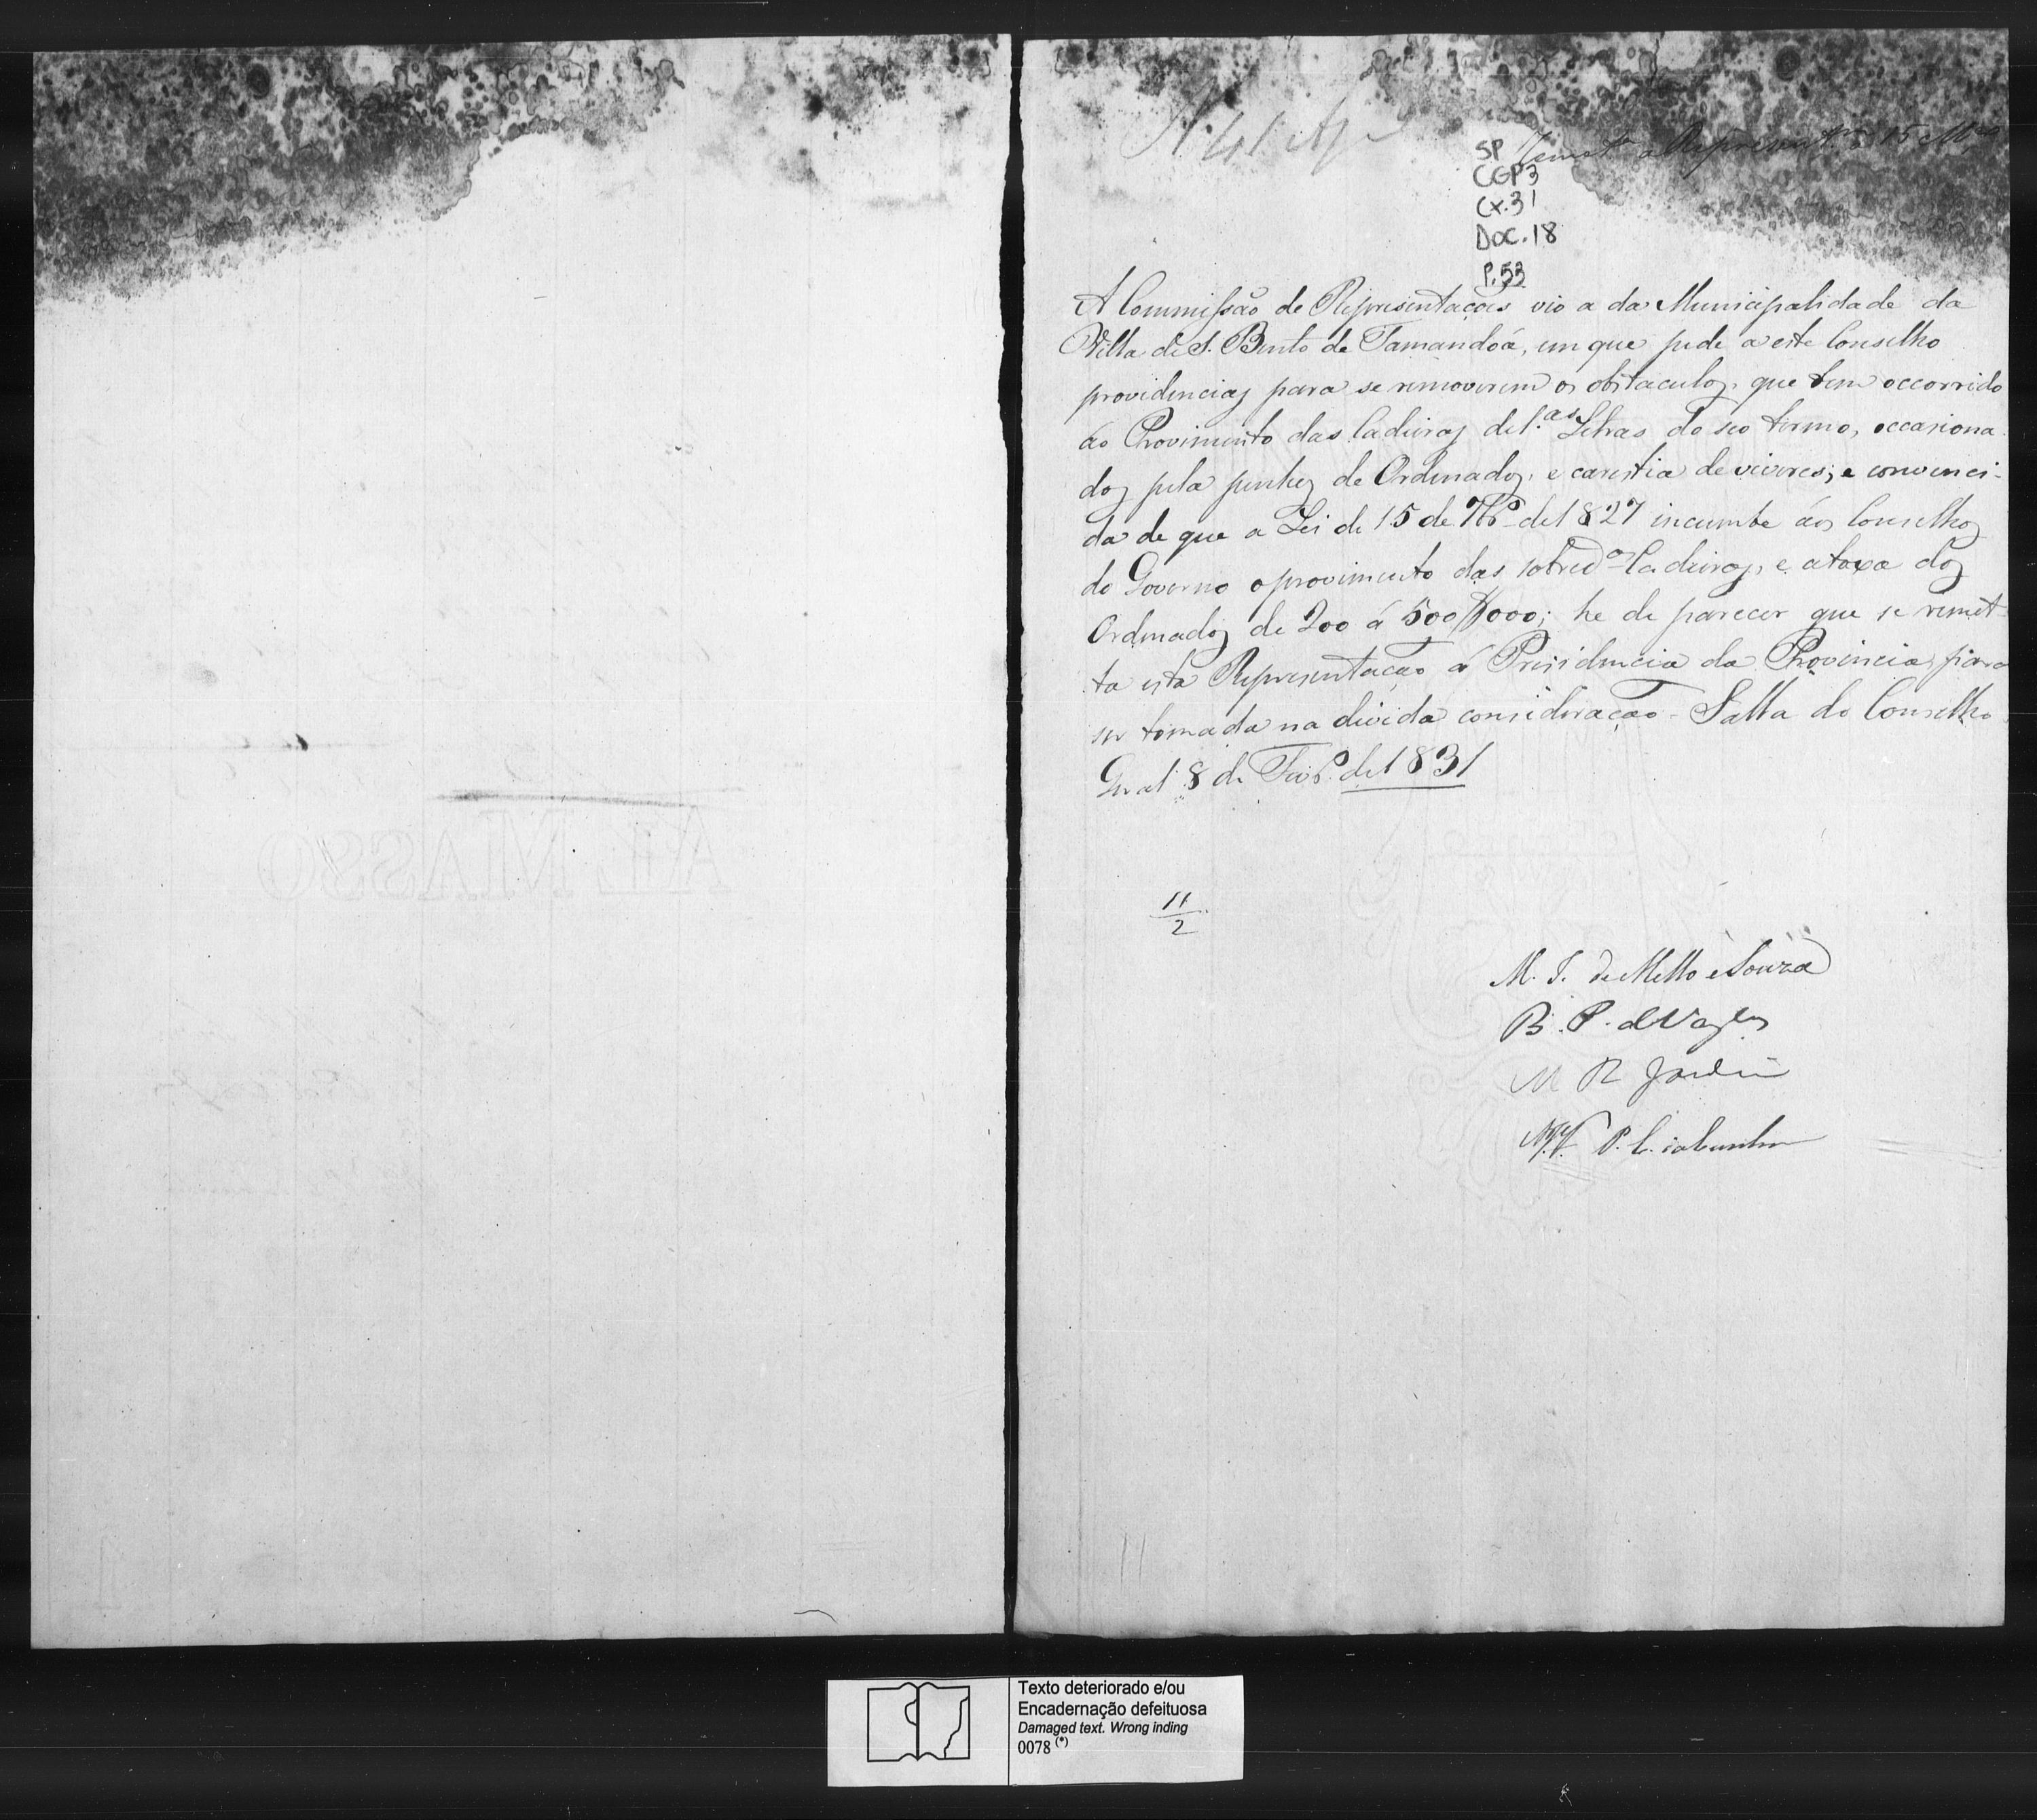 SP
CGP3
Cx.31
Doc.18
P.53
A Commissão de Representações vio a da Municipalidade da
Villa de S. Bento de Tamandoá, em que pede a este Conselho
providencias para se removerem os obstaculos, que tem occorrido
ao Provimento das Cadeiras de 1.as Letras do seo termo, occasiona
dos pela de Ordenados, e carestia de viveres; e convenci-
da de que a Lei de 15 de 7br.o de 1827 incumbe áos Conselhos
do Governo o provimento das sobred.as Cadeiras, e a taxa dos
Ordenados de 200 á 500$000; he de parecer que se remet
ta esta Representação á Presidencia da Provincia, para
ser tomada na devida consideração. Salla do Conselho
Geral 8 de Fevr.o de 1831
11
2
M. I. de Mello e Souza
B. P. de Vas.los
M R Jardim
P. C. da Cunha
AL MASSO
Texto deteriorado e/ou
Encadernação defeituosa
Damaged text. Wrong inding
0078 (*)